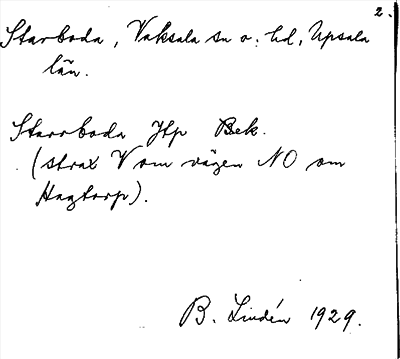 2.
Starboda, Vaksala sn o. hd, Upsala
län.
Starrboda Jtp Bek.
(strax V om vägen NO om
Hagtorp).
B. Lindén 1929.